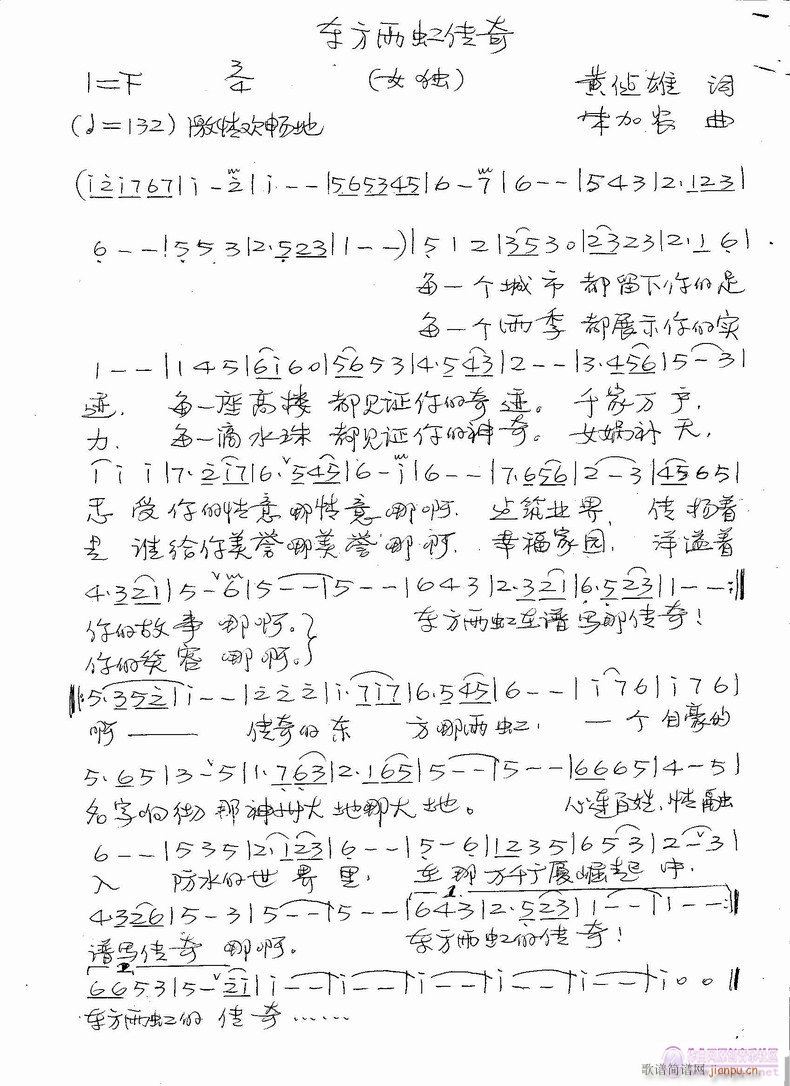 东方雨虹传奇
1=F 3/4 (女独) 黄 雄 词
(♩=132) 激情欢畅地 加农 曲
(i2i767|i-2|i--|565345|6-7|6--|543|2·123|
6--|553|2·523|1--)|512|3530|2323|2·16|
每一个城市 都留下你的足
每一个雨季 都展示你的实
1--|145|6i60|5653|4·543|2--|3·456|5-3|
迹. 每一座高楼 都见证你的奇迹。千家万户,
力. 每一滴水珠 都见证你的神奇。女娲补天,
i i i|7·2i7|6·545|6-i|6--|7·656|2-3|4565|
受你的情意哪情意哪啊. 筑世界, 传扬着
是谁给你美誉哪美誉哪啊. 幸福家园, 洋溢着
4·321|5-6|5--|5--|043|2·321|6·523|1--:‖
你的故事哪啊。} 东方雨虹在谱写那传奇!
你的笑容哪啊。}
‖:5·352|i--|222|i·7i7|6·545|6--|i76|i76|
啊—— 传奇的东 方哪雨虹, 一个自豪的
5·65|3-5|1·763|2·165|5--|5--|6665|4-5|
名字响彻那神州大地哪大地。 心连百姓,情融
6--|535|2·123|6--|5-6|1235|653|2-3|
入 防水的世界里, 在那万千广厦崛起中,
4·326|5-3|5--|5--|643|2·523|1--|1--:‖
1.
谱写传奇哪啊。 东方雨虹的传奇!
2.
6653|5-2i|i--|i--|i--|i--|i--|i00‖
东方雨虹的 传奇……
歌谱简谱网 jianpu.cn